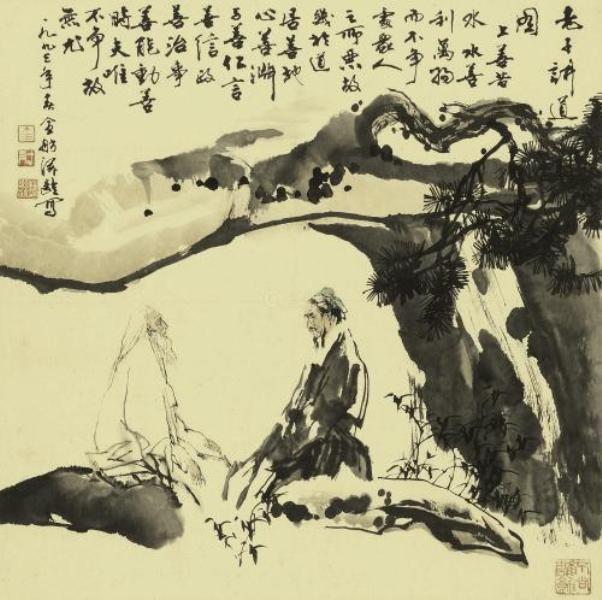 老子讲道
图
上善若
水水善
利萬物
而不争
處衆人
之所恶故
幾於道
居善地
心善渊
与善仁言
善信政
善治事
善能動善
時夫唯
不争故
無尤
一九九三年春寫